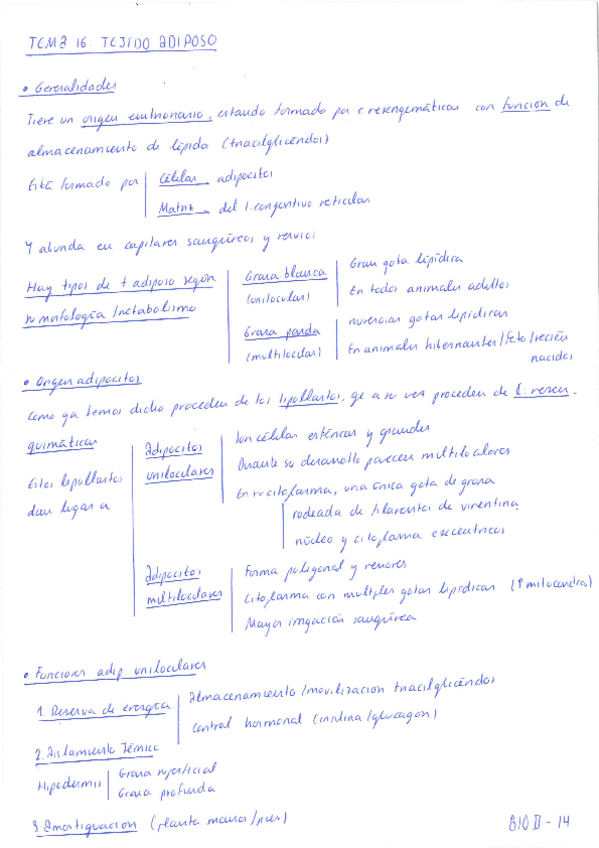 TEMA 16: TEJIDO ADIPOSO
• Generalidades
Tiene un origen embrionario, estando formado por c mesenquimáticas con función de
almacenamiento de lípidos (triacilglicéridos)
Está formado por Células adipocitos
Matriz del t. conjuntivo reticular
Y abunda en capilares sanguíneos y nervios
Hay tipos de t adiposo según
su morfología/metabolismo
Grasa blanca
(unilocular)
Gran gota lipídica
En todos animales adultos
Grasa parda
(multilocular)
numerosas gotas lipídicas
En animales hibernantes/feto/recién
nacidos
• Origen adipocitos
Como ya hemos dicho proceden de los lipoblastos, qe a su vez proceden de c. mesen-
quimáticas
Estos lipoblastos
dan lugar a
Adipocitos
uniloculares
Son células esféricas y grandes
Durante su desarrollo parecen multiloculares
En su citoplasma, una única gota de grasa
rodeada de filamentos de vimentina
núcleo y citoplasma excéntricos
Adipocitos
multiloculares
Forma poligonal y menores
Citoplasma con multiples gotas lipídicas (↑ mitocondria)
Mayor irrigación sanguínea
• Funciones adip uniloculares
1. Reserva de energía
Almacenamiento/movilización triacilglicéridos
Control hormonal (insulina/glucagón)
2. Aislamiento Térmico
Hipodermis
Grasa superficial
Grasa profunda
3 Amortiguación (planta manos/pies)
BIO II - 14